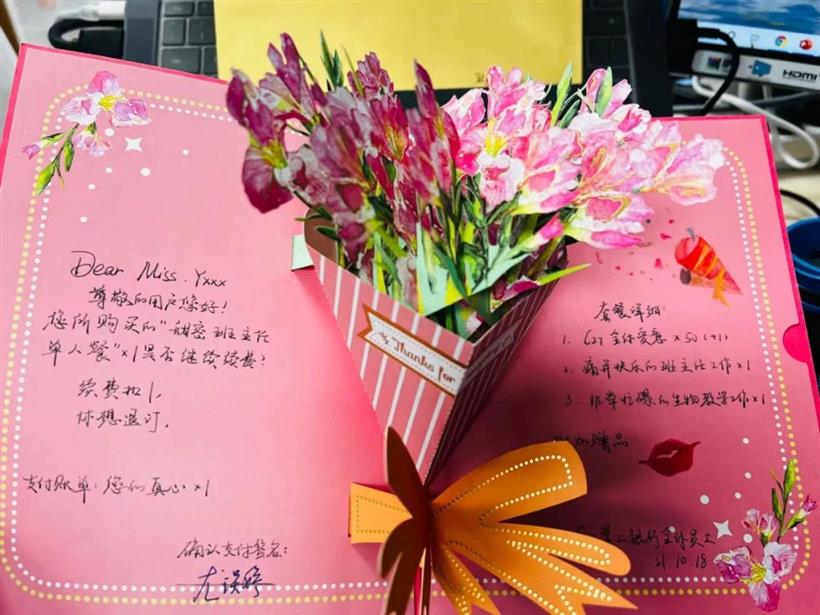 Dear Miss. Yxxx
尊敬的用户您好!
您所购买的"甜密班主任
单人餐"×1是否继续续费?
续费扣1,
休想退订.
支付账单:您的真心×1
确认支付签名:
Thanks for
套餐详细:
1. C27 全体宠爱 ×50(+1)
2. 痛并快乐的班主任工作×1
3. 非常忙碌的生物教学工作×1
附加赠品:
掌上银行全体员工
21.10.18
HDMI